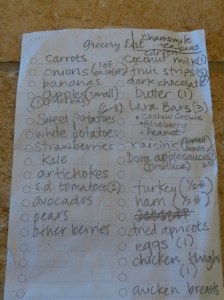 grocery list
chamomile
tea bags
carrots
onions
bananas
apples (small)
sweet potatoes
white potatoes
strawberries
kale
artichokes
s.d. tomatoes (2)
avocados
pears
other berries
coconut milk (1)
fruit strips (5)
dark chocolate
butter (1)
Lara Bars (3)
• Cashew Cookie
• Blueberry
• Peanut
raisins (small
boxes)
applesauce
(produce)
turkey (1/2 #)
ham (1/2 #)
dried apricots
eggs (1)
chicken thighs
(1)
chicken breasts